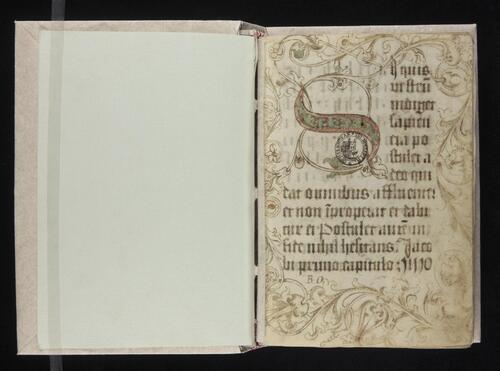 Si quis
vestrū
indiget
sapien
cia po
stulet a
deo qui
dat omnibus affluenter
et non īproperat et dabit
tur ei Postulet autē in
fide nihil hesitans. Jaco
bi primo capitulo
B. D.